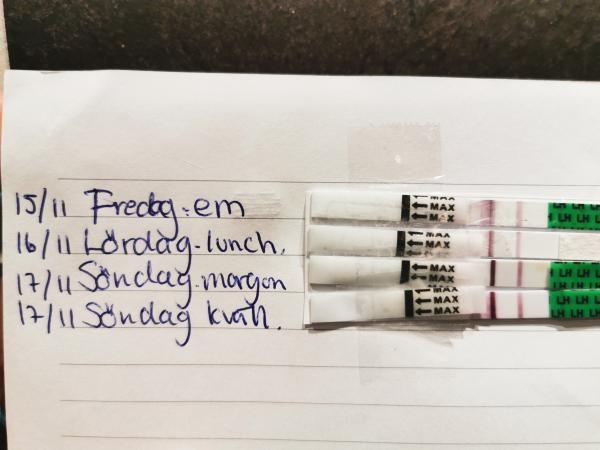 15/11 Fredag. em ← MAX LH LH LH
16/11 Lördag. lunch. ← MAX
17/11 Söndag. morgon ← MAX LH LH LH
17/11 Söndag kväll. ← MAX LH LH LH